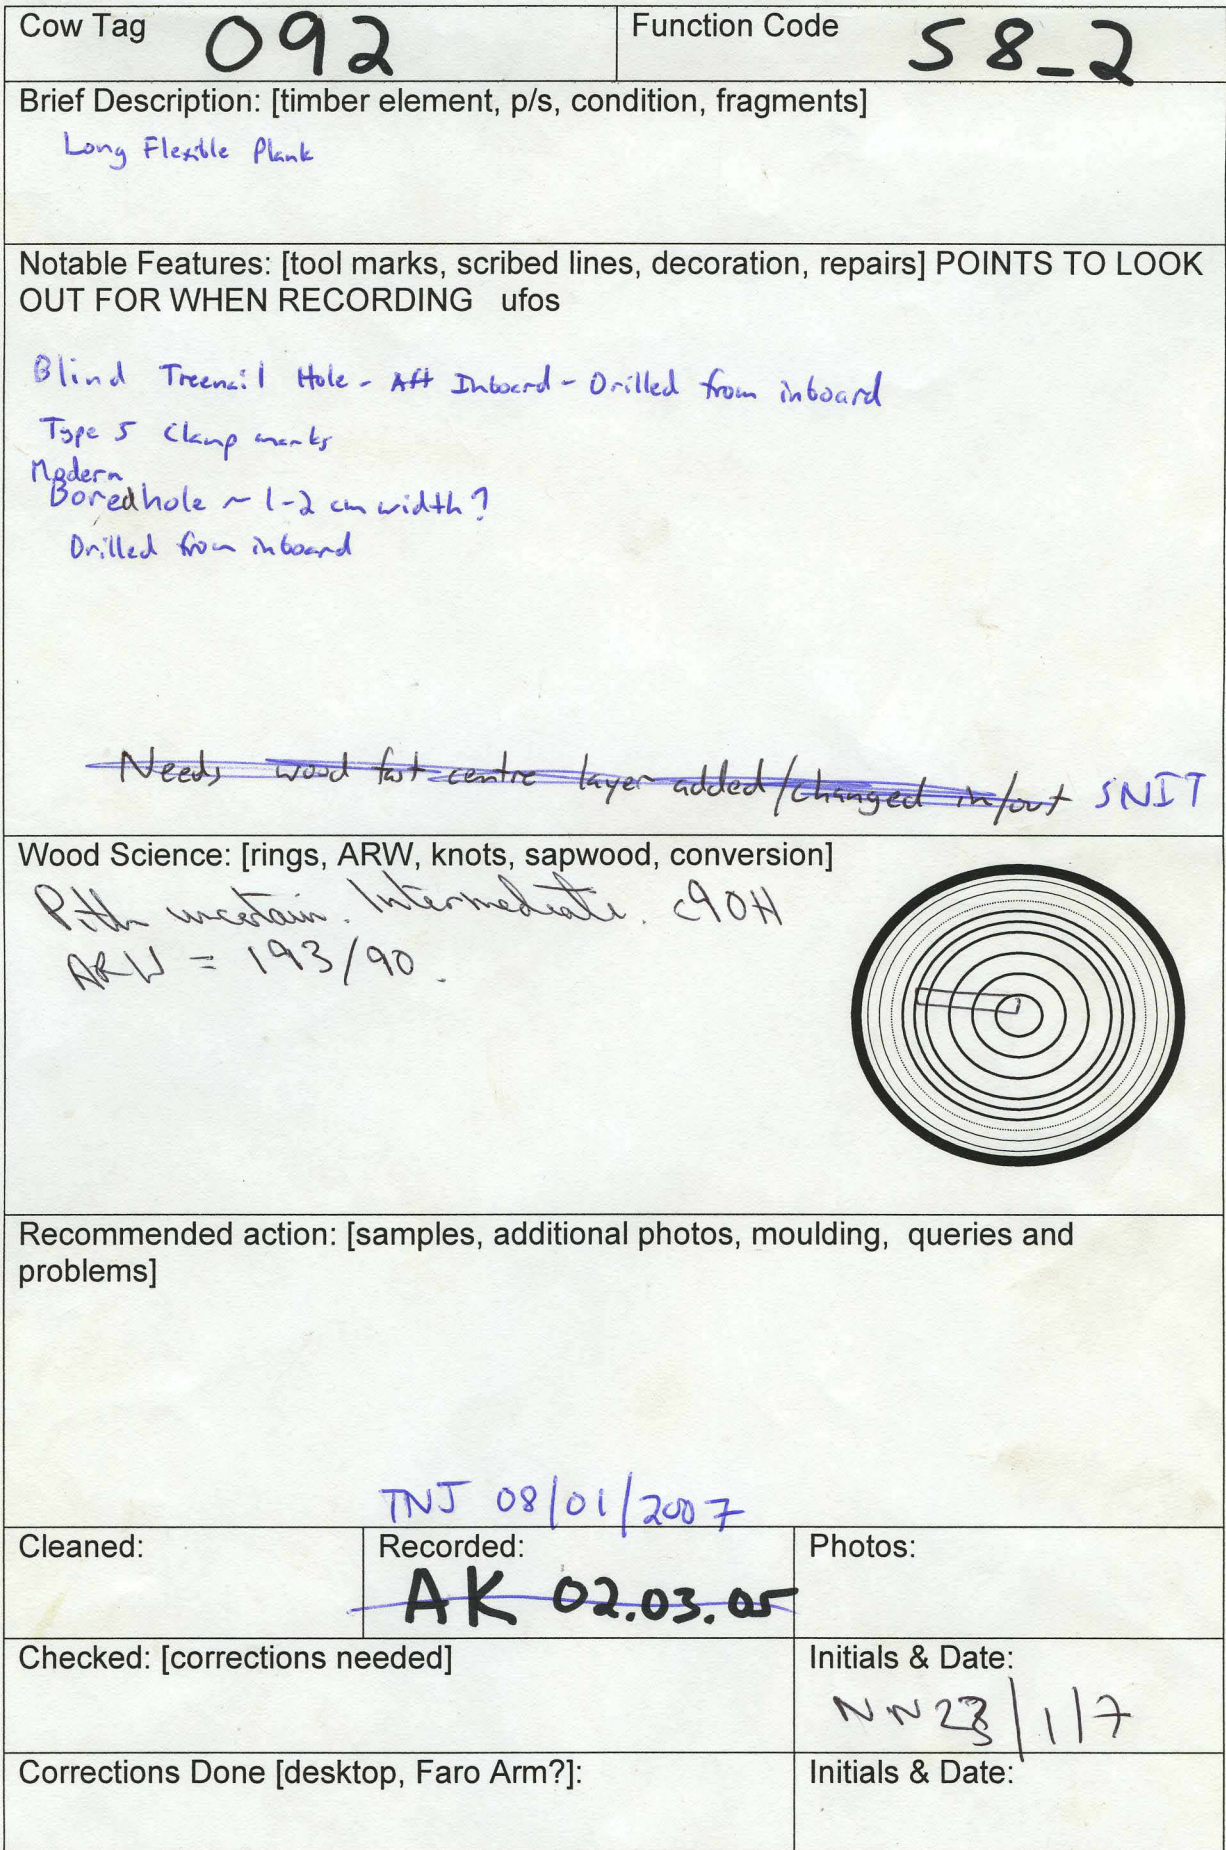 Cow Tag 092 Function Code S8_2
Brief Description: [timber element, p/s, condition, fragments]
Long Flexible Plank
Notable Features: [tool marks, scribed lines, decoration, repairs] POINTS TO LOOK
OUT FOR WHEN RECORDING ufos
Blind Treenail Hole - Aft Inboard - Drilled from inboard
Type 5 Clamp marks
Modern
Boredhole ~ 1-2 cm width?
Drilled from inboard
Needs wood fast centre layer added/changed in/out SNIT
Wood Science: [rings, ARW, knots, sapwood, conversion]
Pith uncertain. Intermediate. c90H
ARW = 193/90.
Recommended action: [samples, additional photos, moulding, queries and
problems]
TNJ 08/01/2007
Cleaned: Recorded: Photos:
AK 02.03.05
Checked: [corrections needed] Initials & Date:
NN 23/1/7
Corrections Done [desktop, Faro Arm?]: Initials & Date: